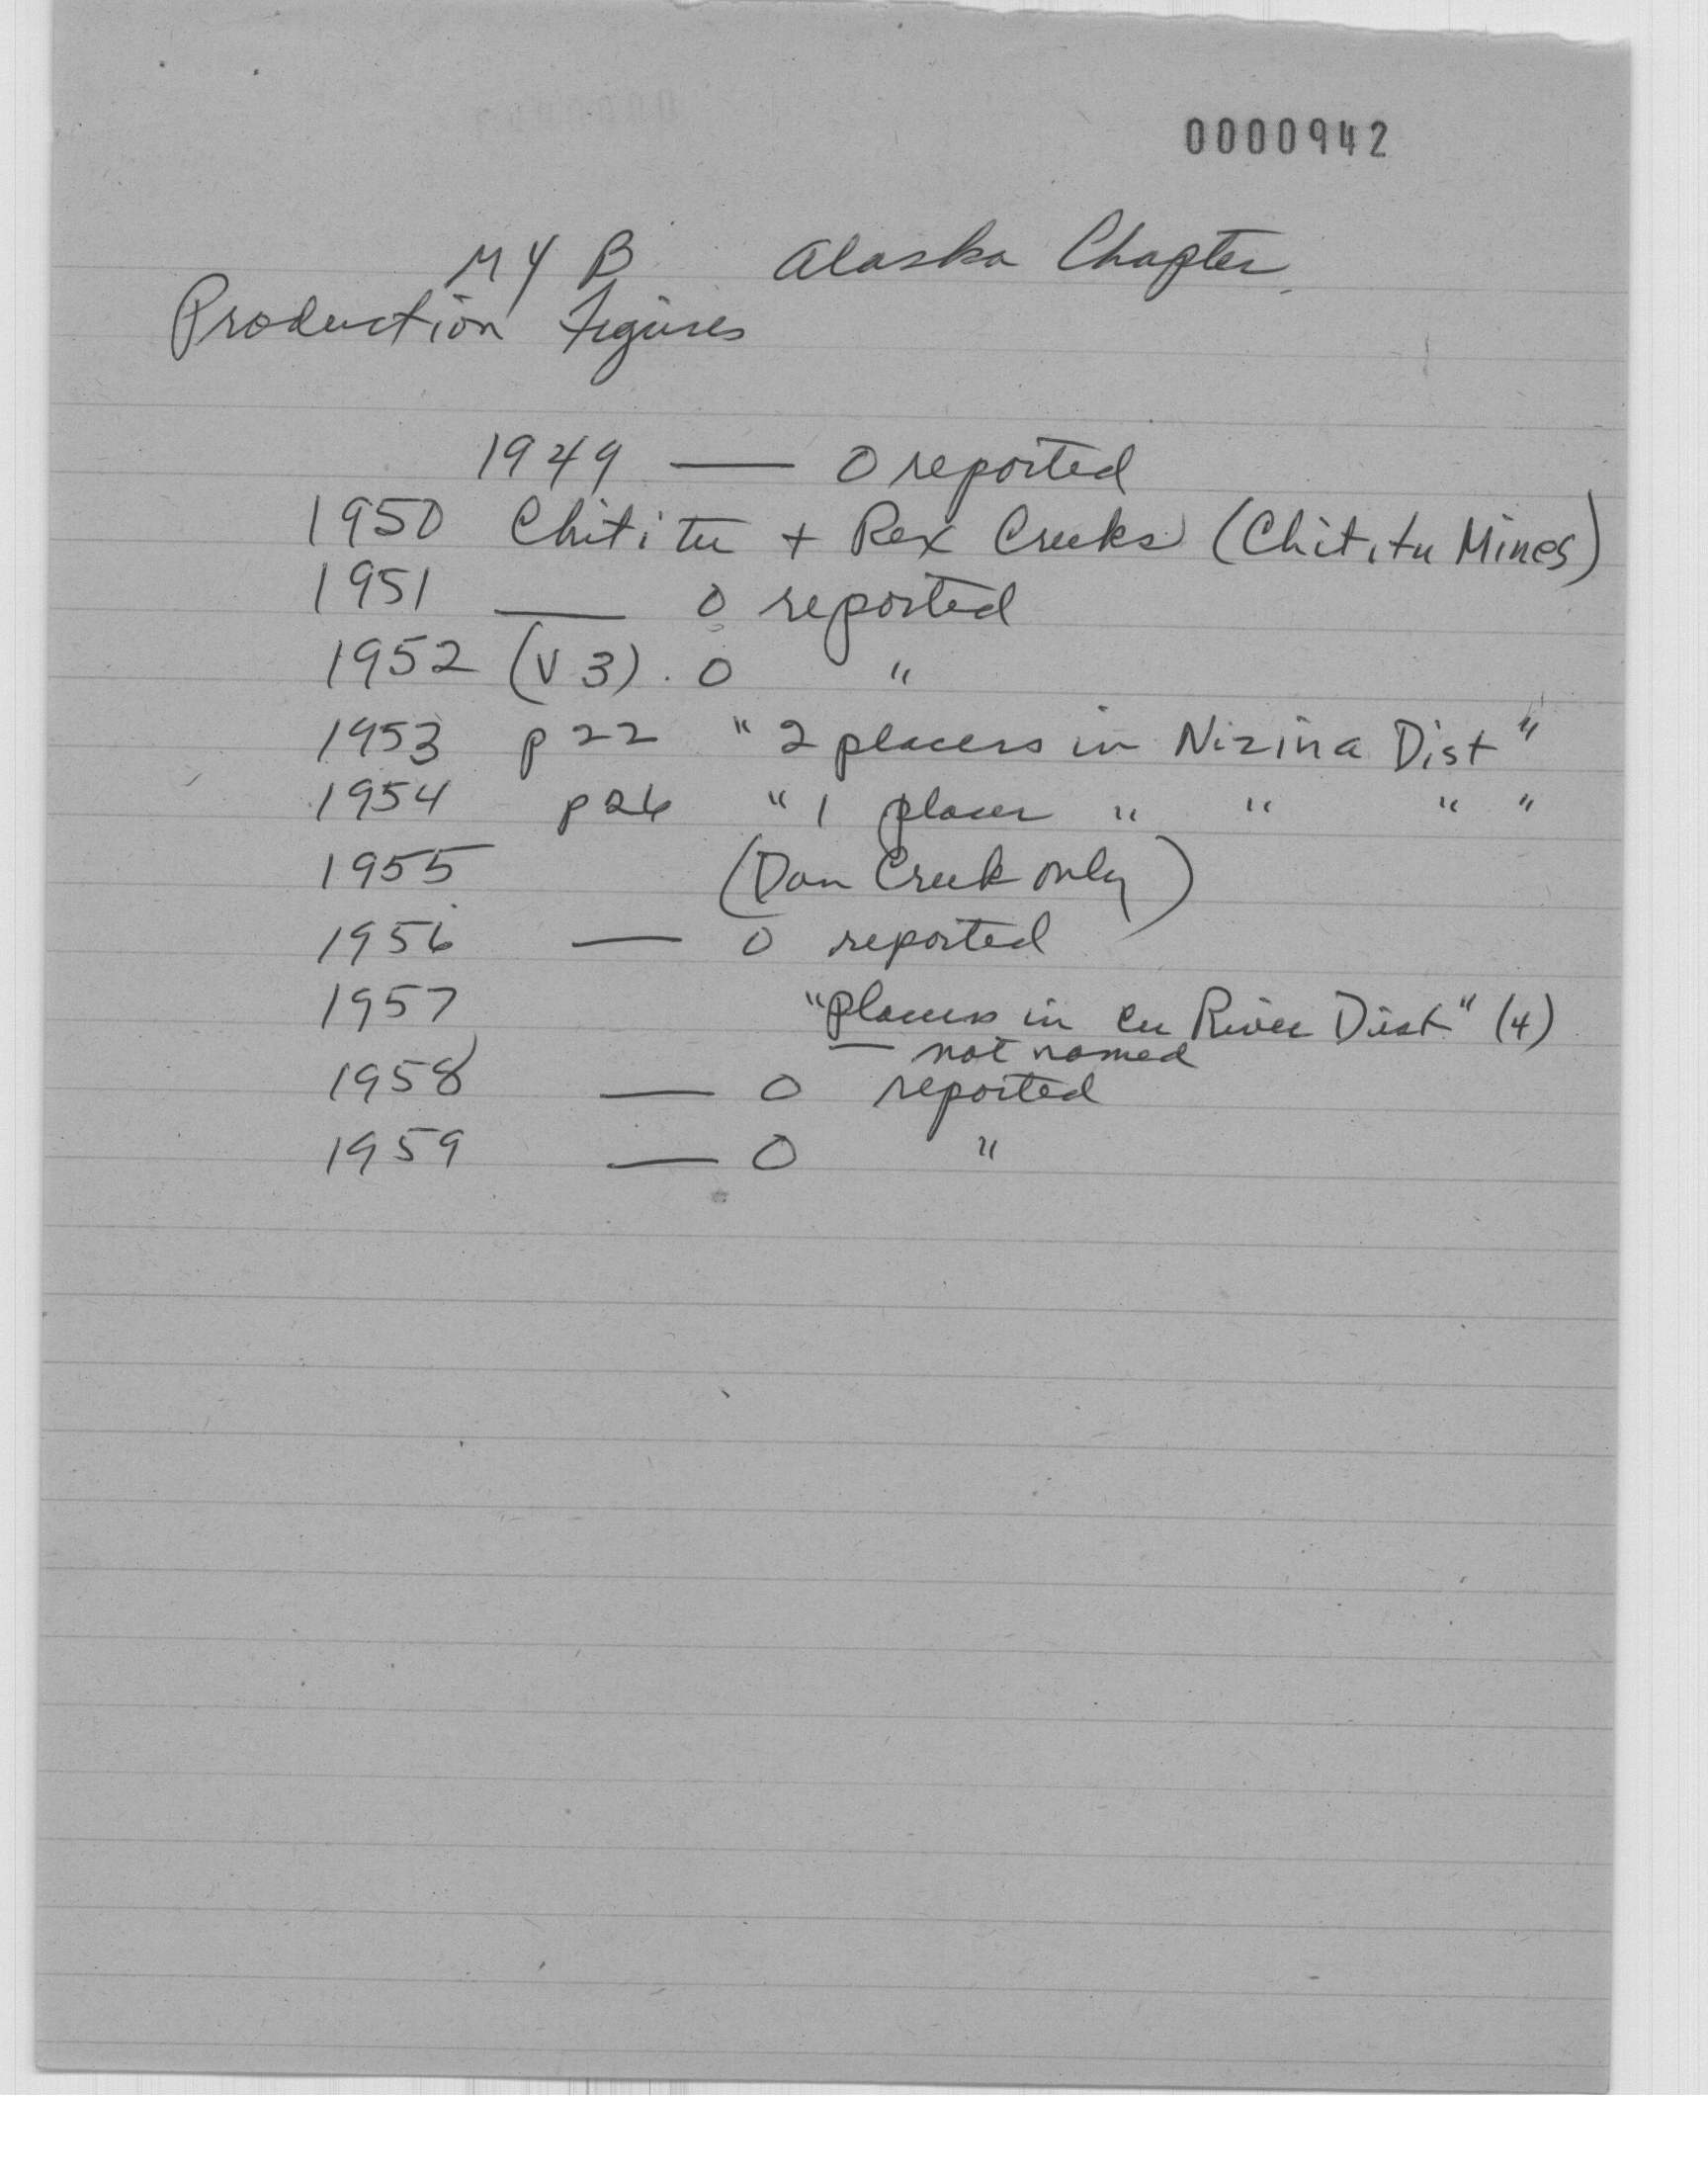 0000942
M Y B Alaska Chapter
Production Figures
1949 — 0 reported
1950 Chititu + Rex Creeks (Chititu Mines)
1951 — 0 reported
1952 (V 3). 0 "
1953 p 22 "2 placers in Nizina Dist"
1954 p 26 "1 placer " " " "
1955 (Dan Creek only)
1956 — 0 reported
1957 "Placers in Cu River Dist" (4)
— not named
1958 — 0 reported
1959 — 0 "